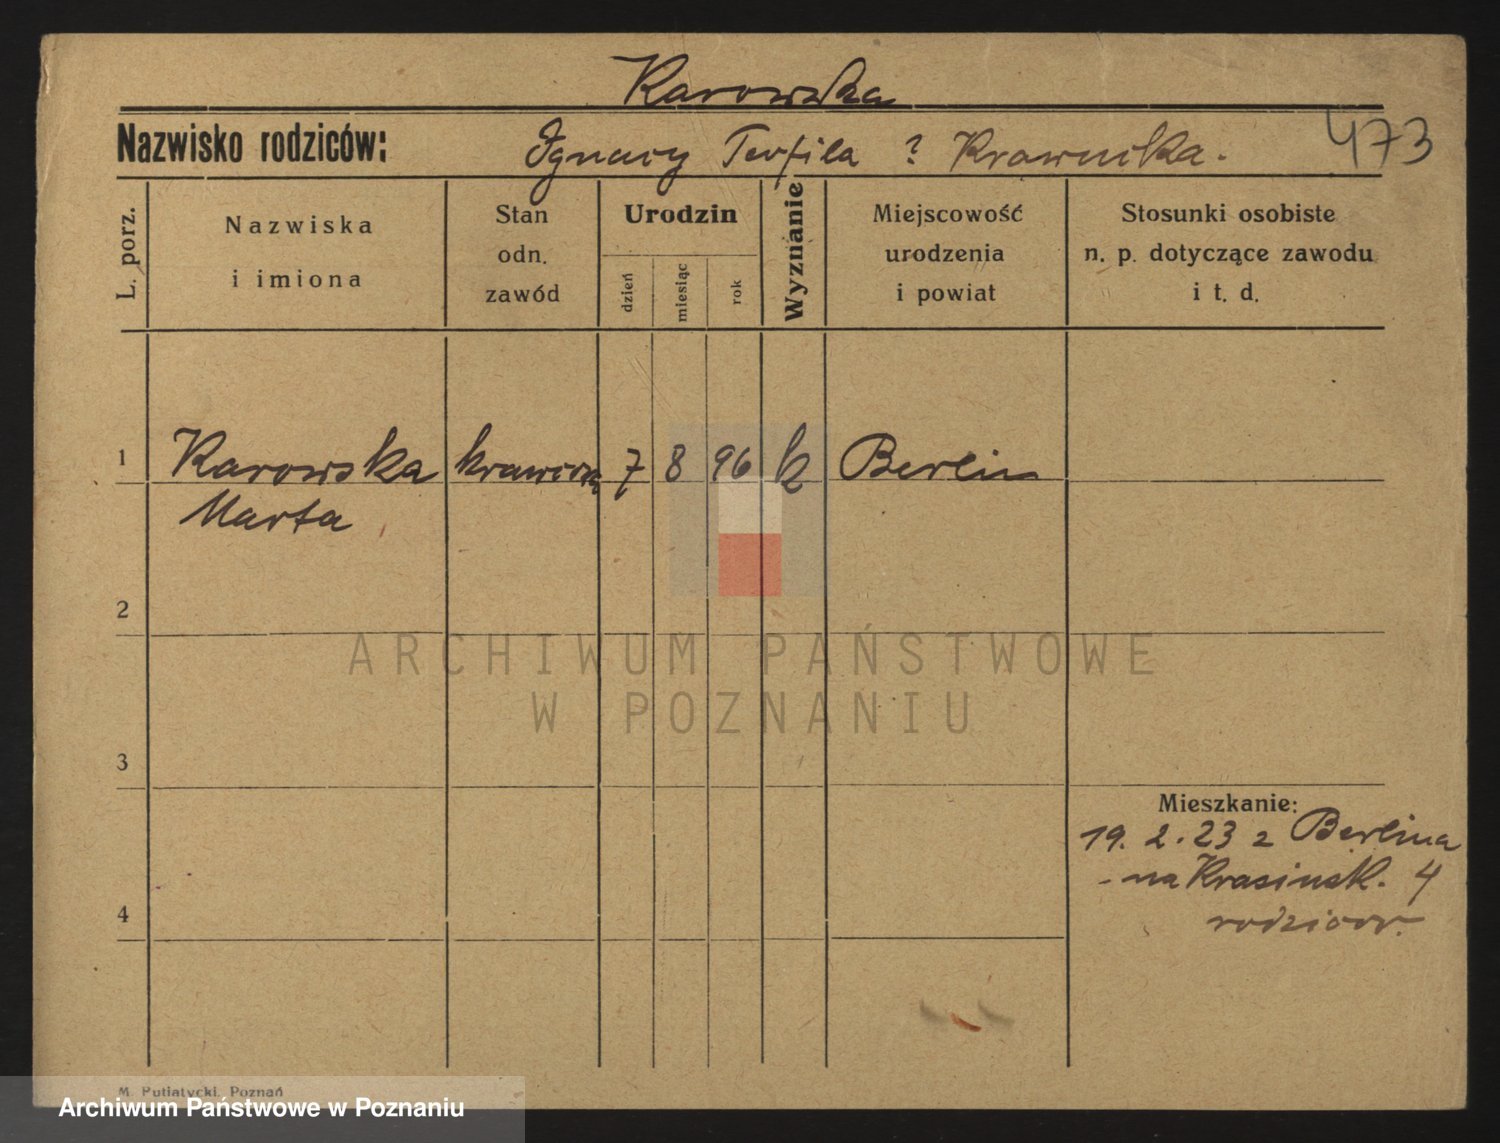 Karowska
Nazwisko rodziców: Ignacy Teofila ? Krawucka. 473
L. porz.
Nazwiska
i imiona
Stan
odn.
zawód
Urodzin
dzień
miesiąc
rok
Wyznanie
Miejscowość
urodzenia
i powiat
Stosunki osobiste
n. p. dotyczące zawodu
i t. d.
1 Karowska krawcową 7 8 96 k Berlin
Marta
2
ARCHIWUM PAŃSTWOWE
W POZNANIU
3
Mieszkanie:
19. 2. 23 z Berlina
- na Krasińsk. 4
4
rodziców.
M. Putiatycki, Poznań
Archiwum Państwowe w Poznaniu